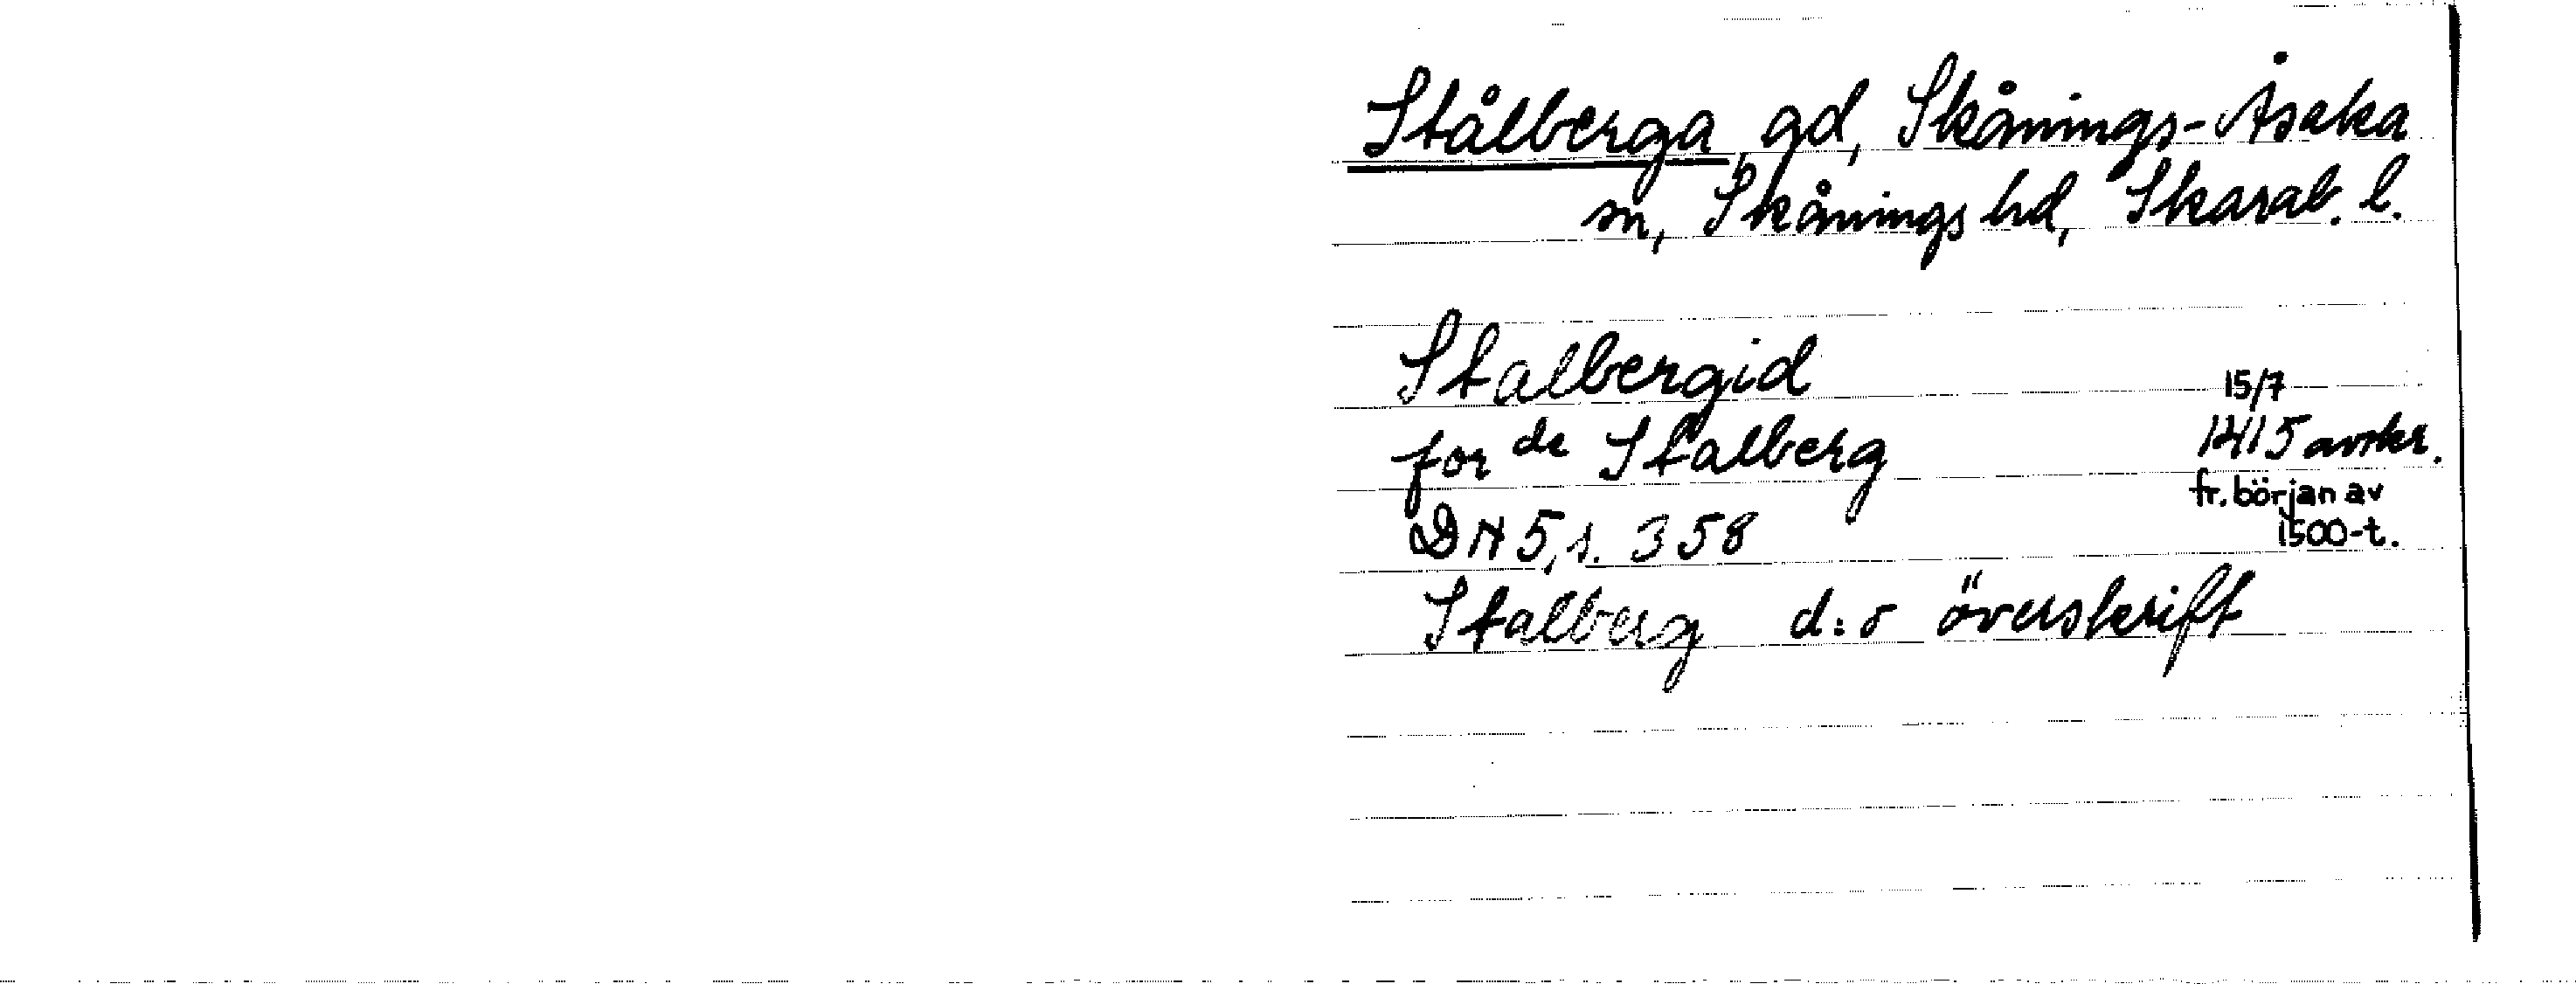 Stålberga gd, Skånings-Åsaka
sn, Skånings hd, Skarab. l.
Stalbergid 15/7
for de Stalberg 1415 avskr.
DN 5, s. 358 fr. början av
1500-t.
Stalberg d:o överskrift